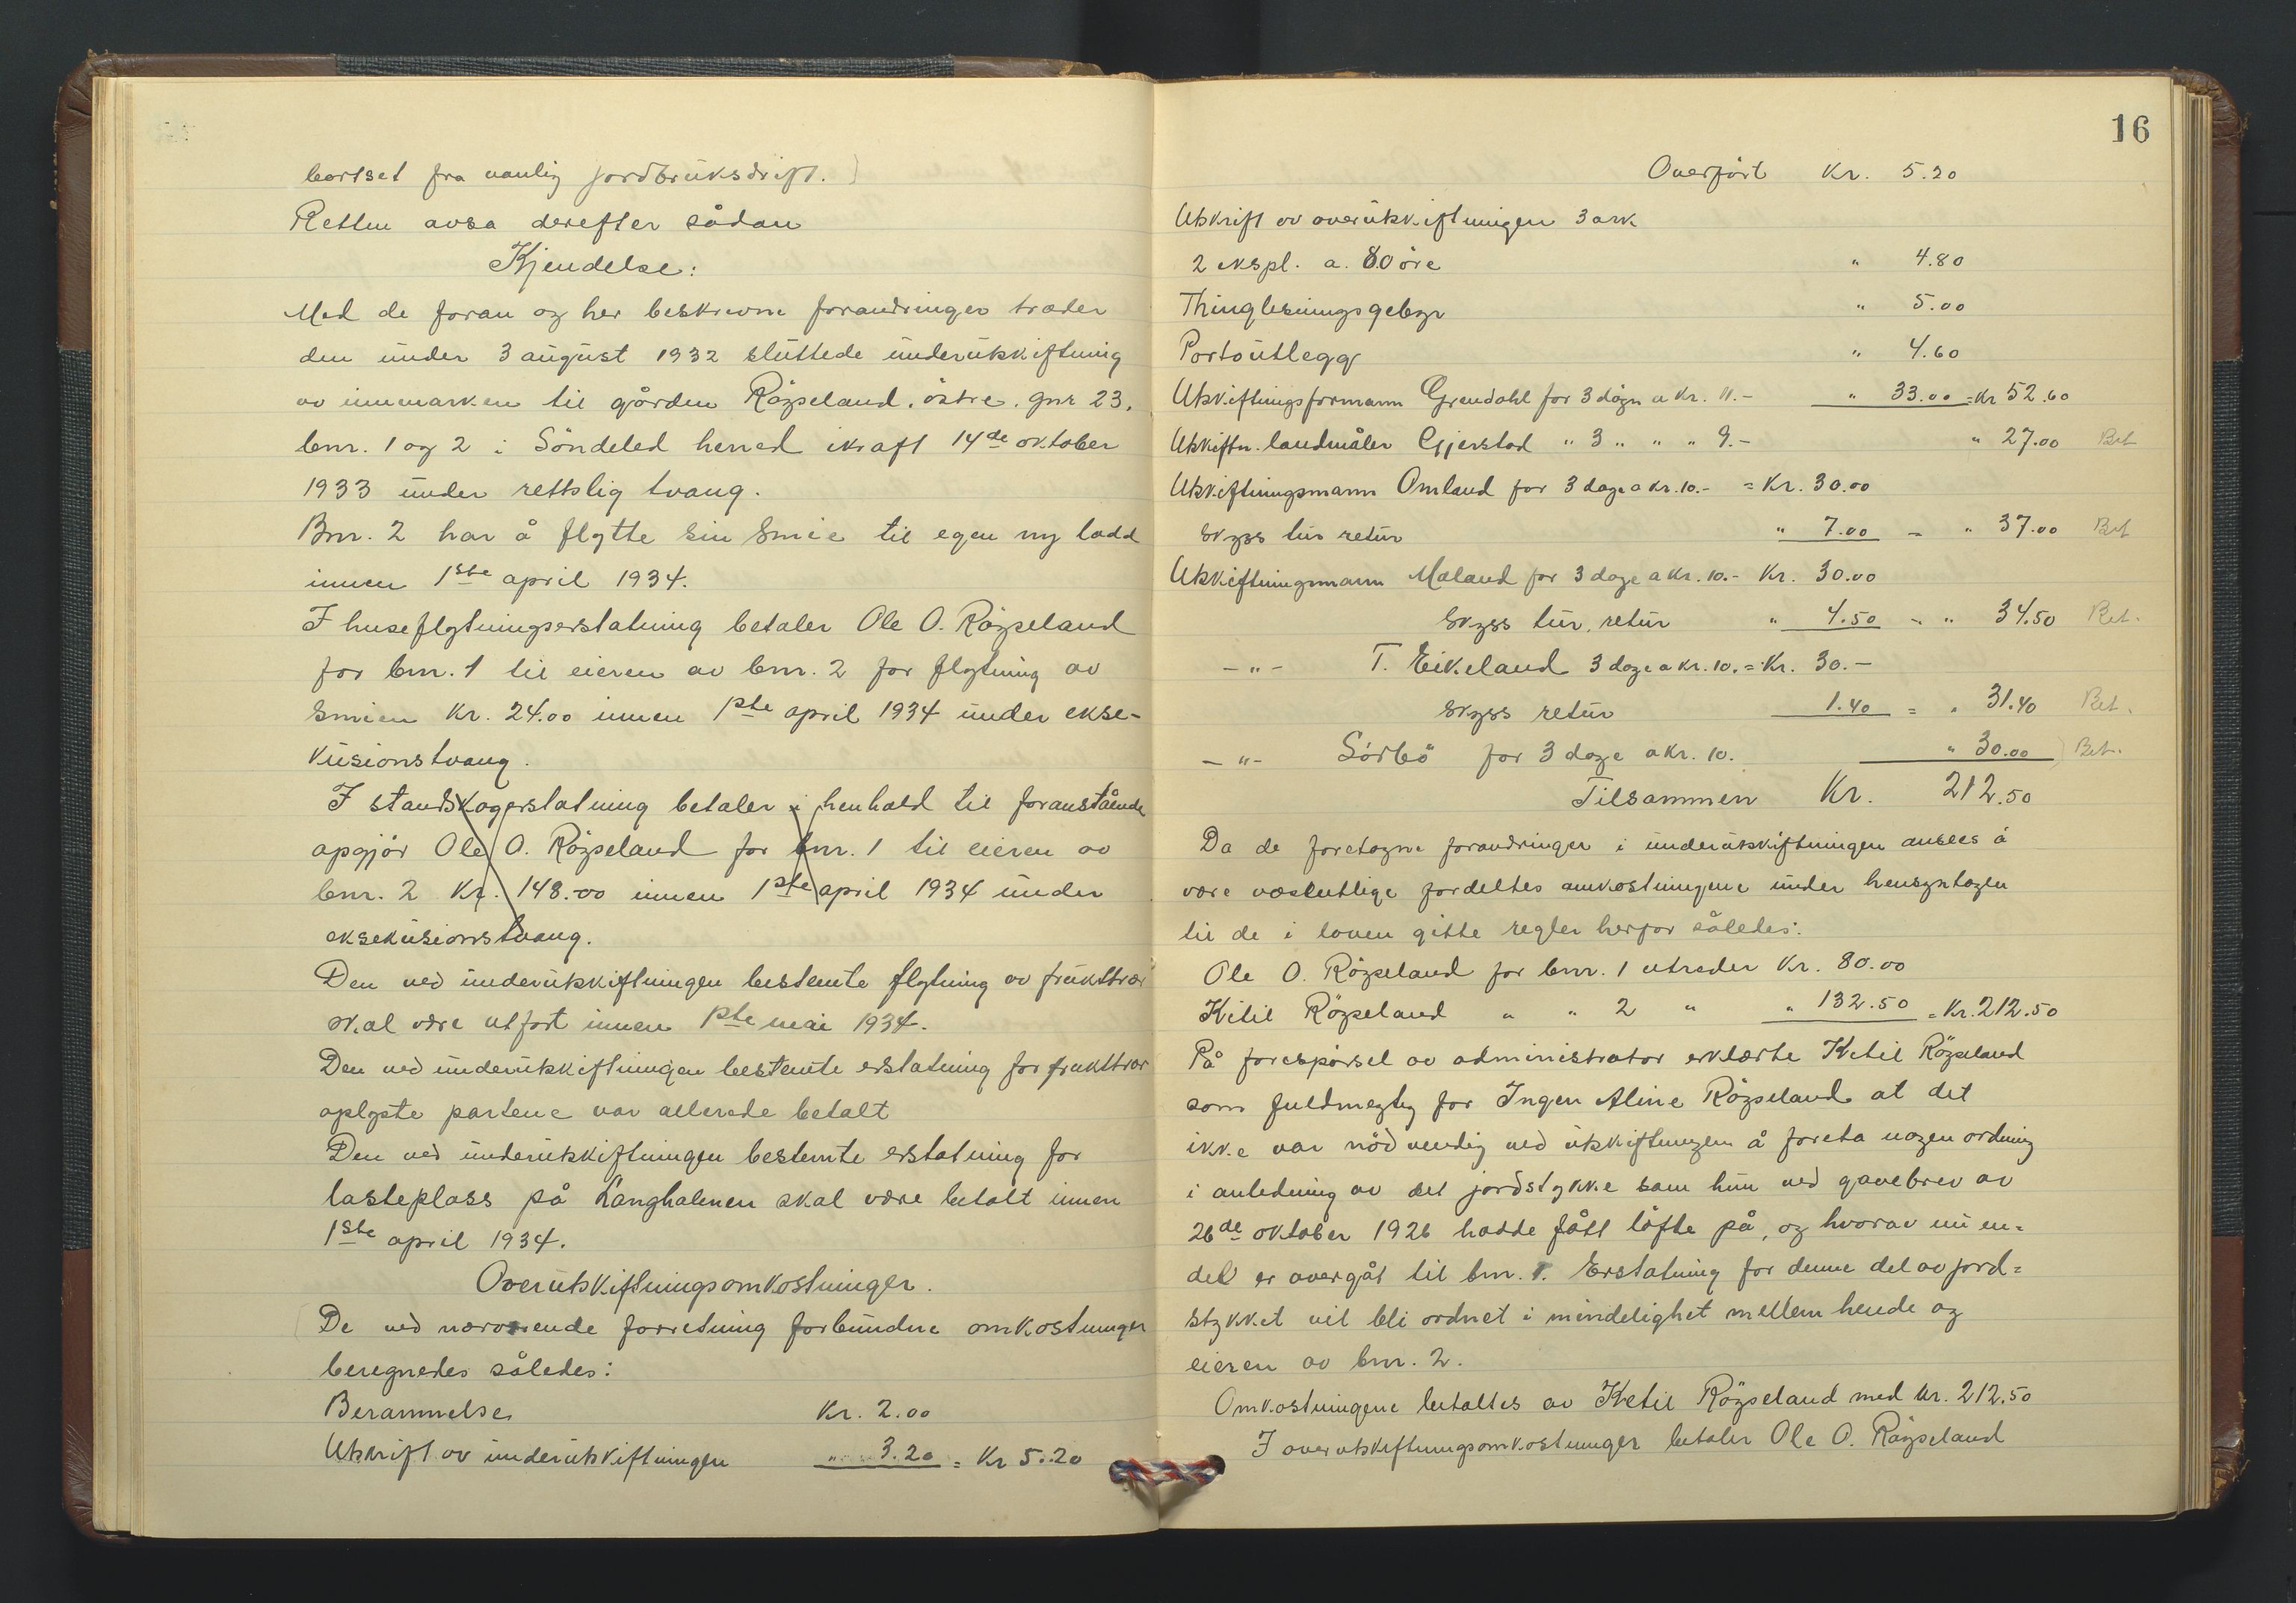 bortset fra vanlig jordbruksdrift.)
Retten avsa derefter sådan
Kjendelse:
Med de foran og her beskrevne forandringer træder
den under 3 august 1932 sluttede underutskiftning
av innmarken til gården Röyseland, östre, gnr 23,
bnr. 1 og 2 i Söndeled herred ikraft 14de oktober
1933 under rettslig tvang.
Bnr. 2 har å flytte sin Smie til egen ny lodd
innen 1ste april 1934.
I huseflytningserstatning betaler Ole O. Röyseland
for bnr. 1 til eieren av bnr. 2 for flytning av
Smien Kr. 24.00 innen 1ste april 1934 under ekse-
kusionstvang.
I standskogerstatning betaler i henhold til foranstående
opgjör Ole O. Röyseland for bnr. 1 til eieren av
bnr. 2 Kr. 148.00 innen 1ste april 1934 under
eksekusionstvang.
Den ved underutskiftningen bestemte flytning av frukttrær
skal være utfört innen 1ste mai 1934.
Den ved underutskiftningen bestemte erstatning for frukttrær
oplyste partene var allerede betalt
Den ved underutskiftningen bestemte erstatning for
lasteplass på Langhalenen skal være betalt innen
1ste april 1934.
Overutskiftningsomkostninger.
De ved nærværende forretning forbundne omkostninger
beregnedes således:
Berammelse Kr. 2.00
Utskrift av underutskiftningen " 3.20 = Kr 5.20
16
Overfört Kr. 5.20
Utskrift av overutskiftningen 3 ark
2 ekspl. a. 80 öre " 4.80
Thinglesningsgebyr " 5.00
Portoutlegg " 4.60
Utskiftningsformann Grendahl for 3 dögn a Kr. 11.- " 33.00 = Kr 52.60
Utskiftn. landmåler Gjerstad " 3 " " " 9.- " 27.00 Bet
Utskiftningsmann Omland for 3 dage a Kr. 10.- = Kr. 30.00
Skyss tur retur " 7.00 = " 37.00 Bet
Utskiftningsmann Maland for 3 dage a Kr. 10.- Kr. 30.00
Skyss tur, retur " 4.50 = " 34.50 Bet.
- " - T. Eikeland 3 dage a kr. 10. = Kr. 30.-
Skyss retur 1.40 = " 31.40 Bet.
- " - Sörbö for 3 dage a kr. 10. " 30.00 Bet.
Tilsammen Kr. 212.50
Da de foretagne forandringer i underutskiftningen ansees å
være væsentlige fordeltes omkostningene under hensyntagen
til de i loven gitte regler herfor således:
Ole O. Röyseland for bnr. 1 utreder Kr. 80.00
Ketil Röyseland " " 2 " " 132.50 = Kr. 212.50
På forespörsel av administrator erklærte Ketil Röyseland
som fuldmegtig for Ingen Aline Röyseland at det
ikke var nödvendig ved utskiftningen å foreta nogen ordning
i anledning av det jordstykke som hun ved gavebrev av
26de oktober 1926 hadde fått löfte på, og hvorav nu en-
del er overgåt til bnr. 1. Erstatning for denne del av jord-
stykket vil bli ordnet i mindelighet mellem hende og
eieren av bnr. 2.
Omkostningene betaltes av Ketil Röyseland med kr. 212.50
I overutskiftningsomkostninger betaler Ole O. Röyseland